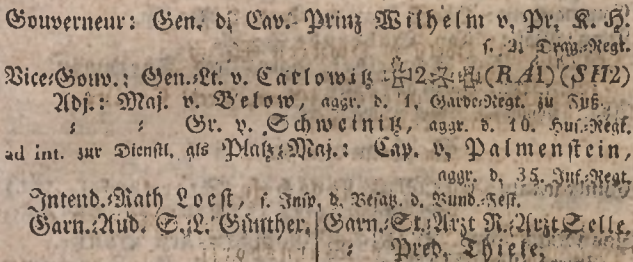 Gouverneur: Gen. d. Cav. Prinz Wilhelm v. Pr. K. H.
s. 2. Drag.-Regt.
Vice-Gouv.: Gen.-Lt. v. Carlowitz 2 (RA1) (SH2)
Adj.: Maj. v. Below, aggr. d. 1. Garde-Regt. zu Fuß.
: : Gr. v. Schweinitz, aggr. d. 10. Hus.-Regt.
ad int. zur Dienstl. als Platz-Maj.: Cap. v. Palmenstein,
aggr. d. 35. Inf.-Regt.
Intend.-Rath Loest, s. Insp. d. Besatz. d. Bund.-Fest.
Garn.-Aud. S.-L. Günther. Garn.-St.-Arzt R.-Arzt Selle.
: Pred. Thiele.